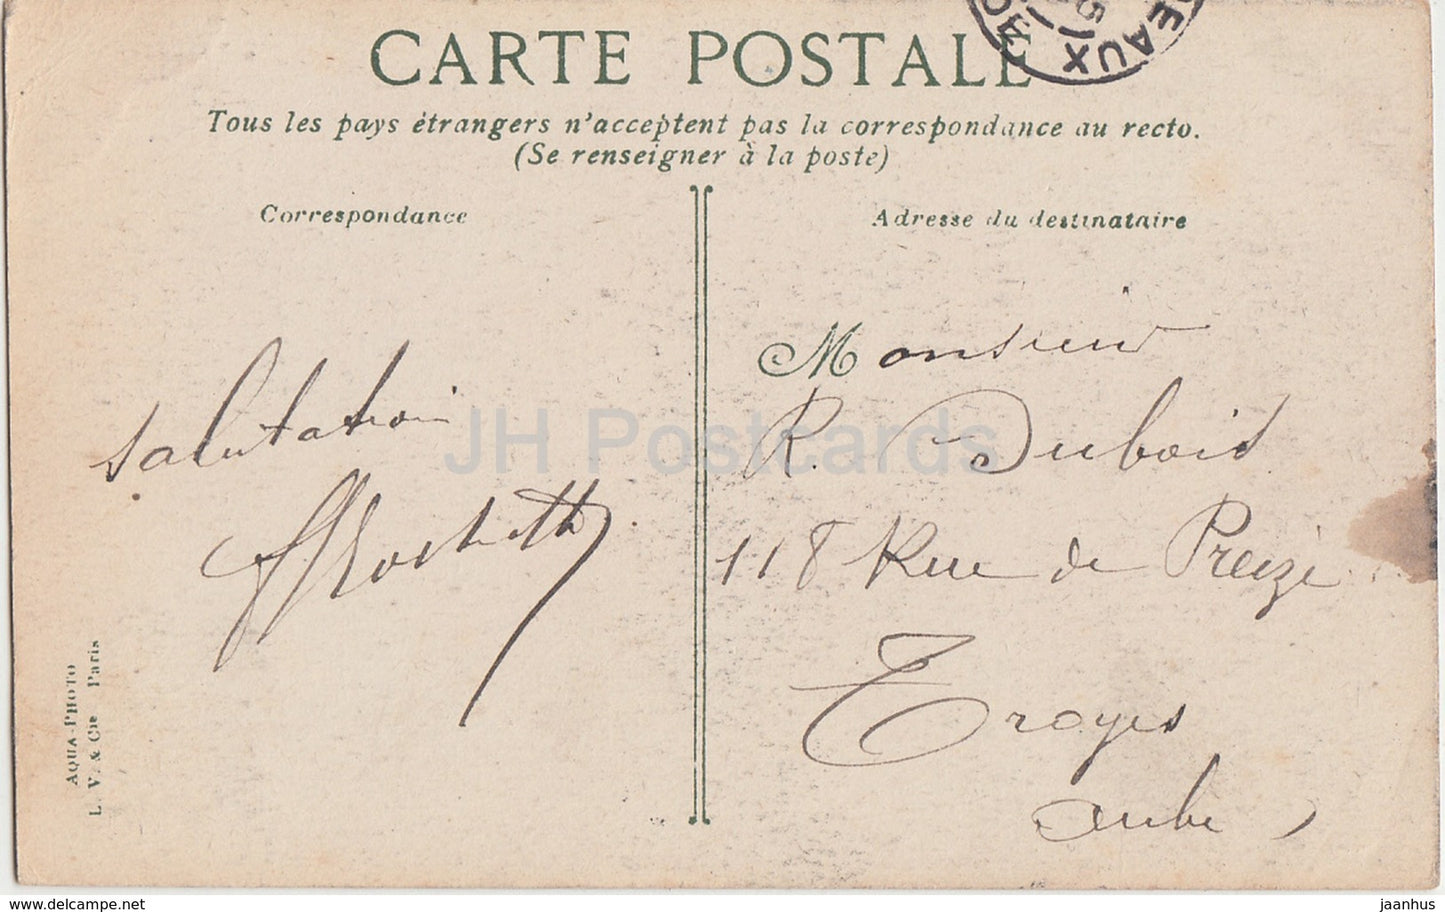 CARTE POSTALE
EAUX
Tous les pays étrangers n'acceptent pas la correspondance au recto.
(Se renseigner à la poste)
Correspondance
Adresse du destinataire
salutation
Monsieur
R. Dubois
118 Rue de Preize
Troyes
aube
AQUA-PHOTO
L. V. & Cie Paris
JH Postcards
www.delcampe.net
jaanhus